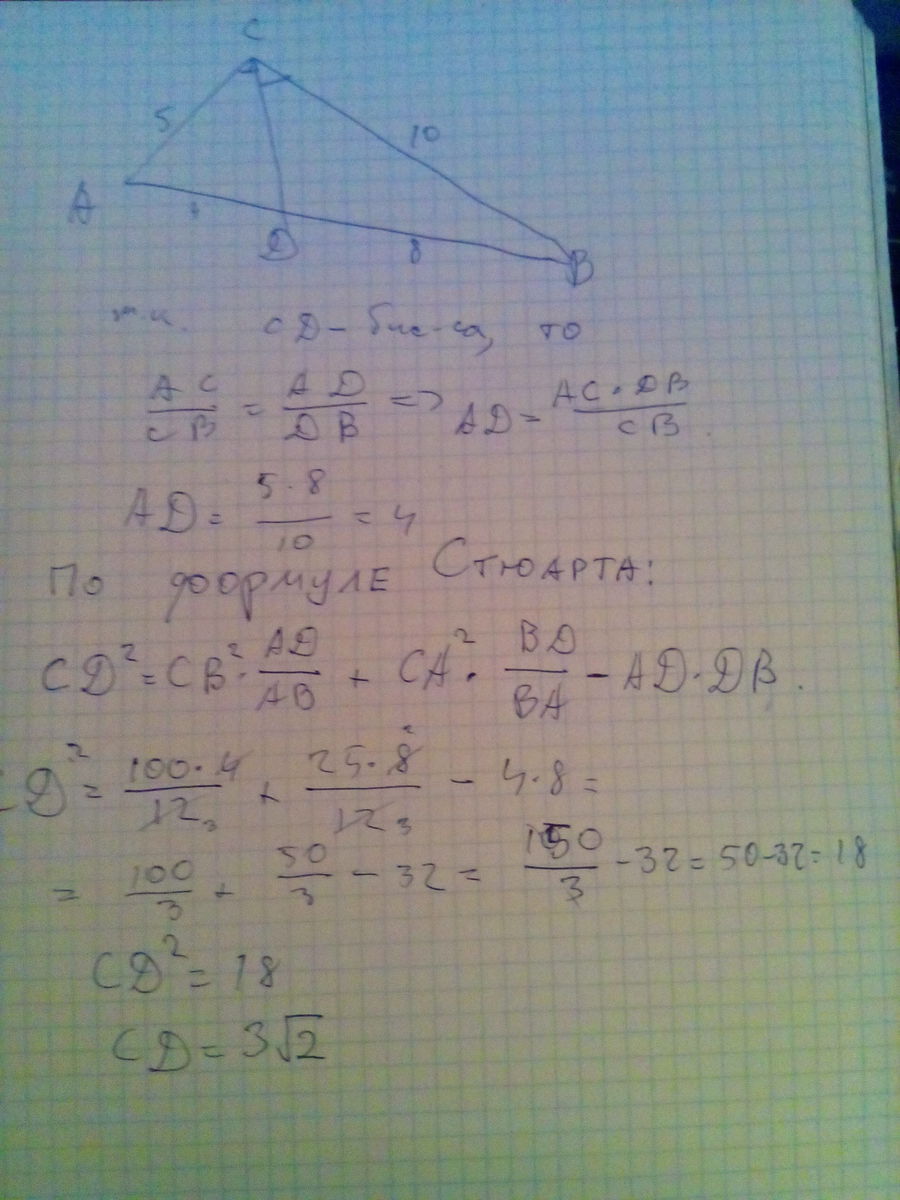 C
5
10
A
D
8
B
т.к. CD - бис-са, то
AC/CB = AD/DB => AD = AC·DB/CB.
AD = 5·8/10 = 4
По формуле Стюарта:
CD² = CB²·AD/AB + CA²·BD/BA - AD·DB.
CD² = 100·4/12 3 + 25·8 2/12 3 - 4·8 =
= 100/3 + 50/3 - 32 = 150/3 - 32 = 50-32 = 18
CD² = 18
CD = 3√2